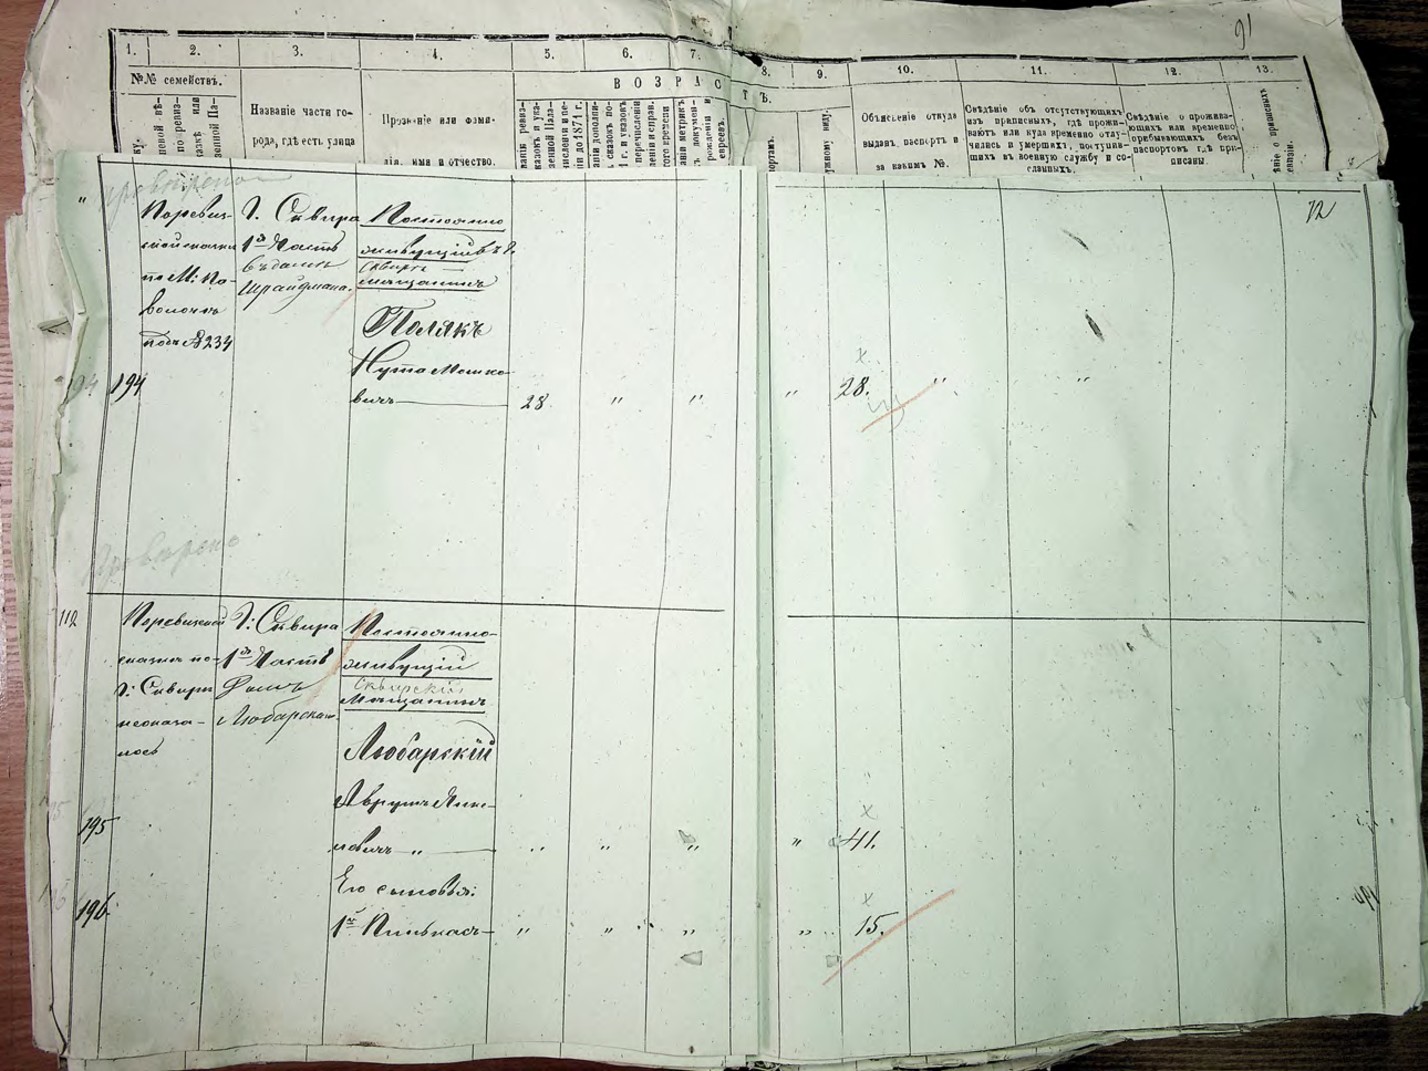 91
1. 2. 3. 4. 5. 6. 7. 8. 9. 10. 11. 12. 13.
№№ семействъ.
ВОЗРАСТЪ.
Названіе части го-
рода, гдѣ есть улица
Прозваніе или фами-
лія, имя и отчество.
Объясненіе откуда
выданъ, паспортъ и
за какимъ №.
Свѣдѣніе объ отсутствующихъ
изъ приписныхъ, гдѣ прожи-
ваютъ или куда временно отлу-
чились и умершихъ, поступив-
шихъ въ военную службу и со-
сланныхъ.
Свѣдѣніе о прожива-
ющихъ или временно
пребывающихъ безъ
паспортовъ гдѣ при-
писаны.
Проверено
72
"
Поревиз-
ской сказкѣ
по М: По-
волочѣ
подъ №234
Г. Сквира
1я Часть
въ домѣ
Шрайдмана.
Постоянно
живущій въ г.
Сквирѣ
мѣщанинъ
Полякъ
194 194
Нута Мошко-
вичъ 28 " " " 28. " "
Проверено
112
Поревизской
сказкѣ по
г: Сквирѣ
неоказа-
лось
Г: Сквира
1я Часть
Домъ
Любарскаго.
Постоянно-
живущій
Сквирскій
Мѣщанинъ
Любарскій
195
Аврумъ Пин-
ковичъ " " " " " 41.
Его сыновья:
196
1й Пинькасъ " " " " 15.